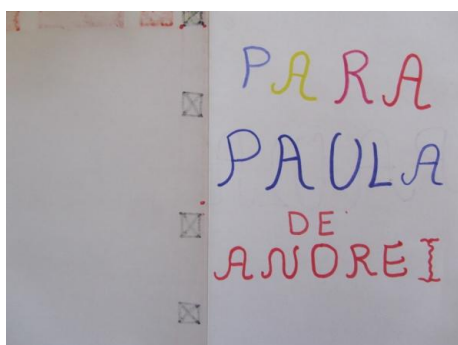 PARA
PAULA
DE
ANDREI